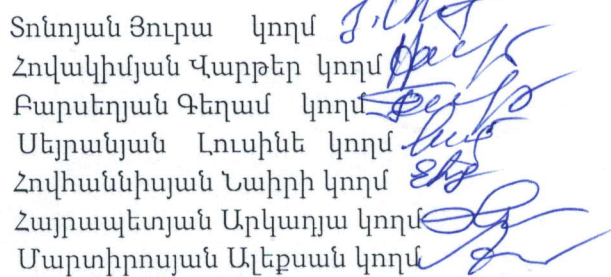 Տոնոյան Յուրա կողմ
Հովակիմյան Վարթեր կողմ
Բարսեղյան Գեղամ կողմ
Սեյրանյան Լուսինե կողմ
Հովհաննիսյան Նաիրի կողմ
Հայրապետյան Արկադյա կողմ
Մարտիրոսյան Ալեքսան կողմ